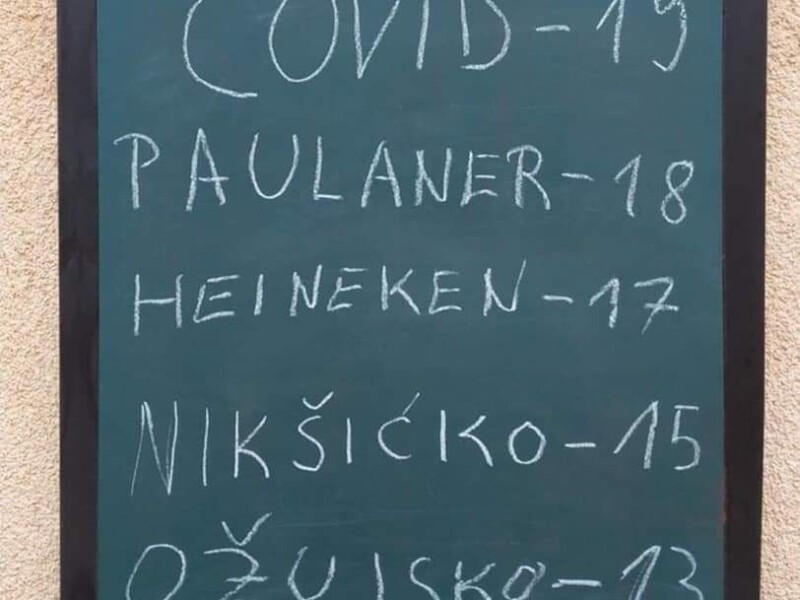 COVID-19
PAULANER-18
HEINEKEN-17
NIKŠIĆKO-15
OŽUJSKO-13